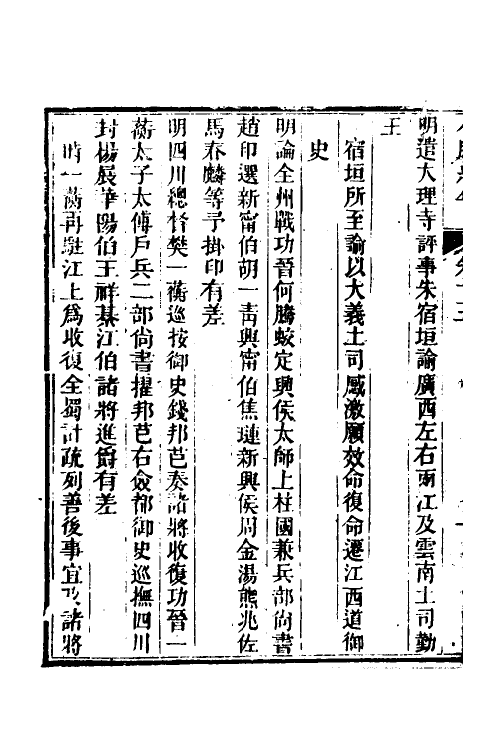 明遣大理寺評事朱宿垣諭廣西左右兩江及雲南土司勤
王
宿垣所至諭以大義土司感激願效命復命遷江西道御
史
明論全州戰功晉何騰蛟定興侯太師上柱國兼兵部尚書
趙印選新甯伯胡一青興甯伯焦璉新興侯周金湯熊兆佐
馬春麟等予掛印有差
明四川總督樊一蘅巡按御史錢邦芑奏諸將收復功晉一
蘅太子太傅戶兵二部尚書擢邦芑右僉都御史巡撫四川
封楊展華陽伯王祥綦江伯諸將進爵有差
時一蘅再駐江上爲收復全蜀計疏列善後事宜及諸將